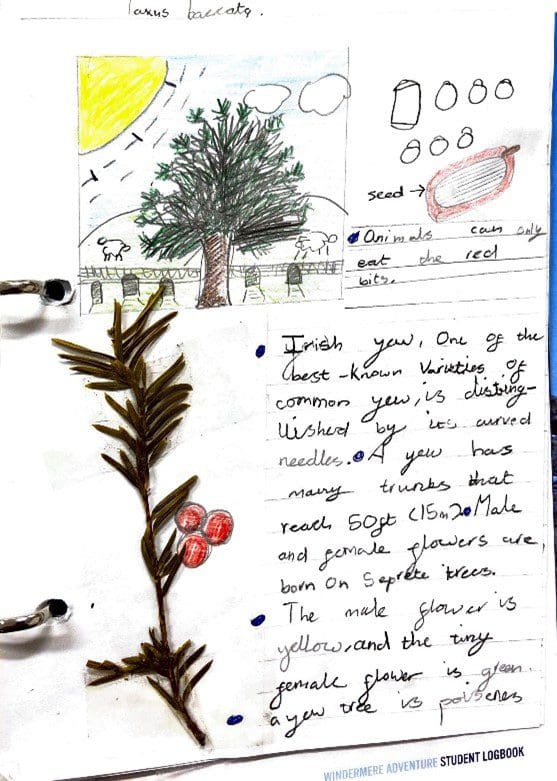 Taxus baccata.
seed →
Animals can only
eat the red
bits.
Irish yew, One of the
best-known varieties of
common yew, is disting-
uished by its curved
needles. A yew has
many trunks that
reach 50ft (15m). Male
and female flowers are
born on seprete trees.
The male flower is
yellow, and the tiny
female flower is green.
a yew tree is poisenes
WINDERMERE ADVENTURE STUDENT LOGBOOK